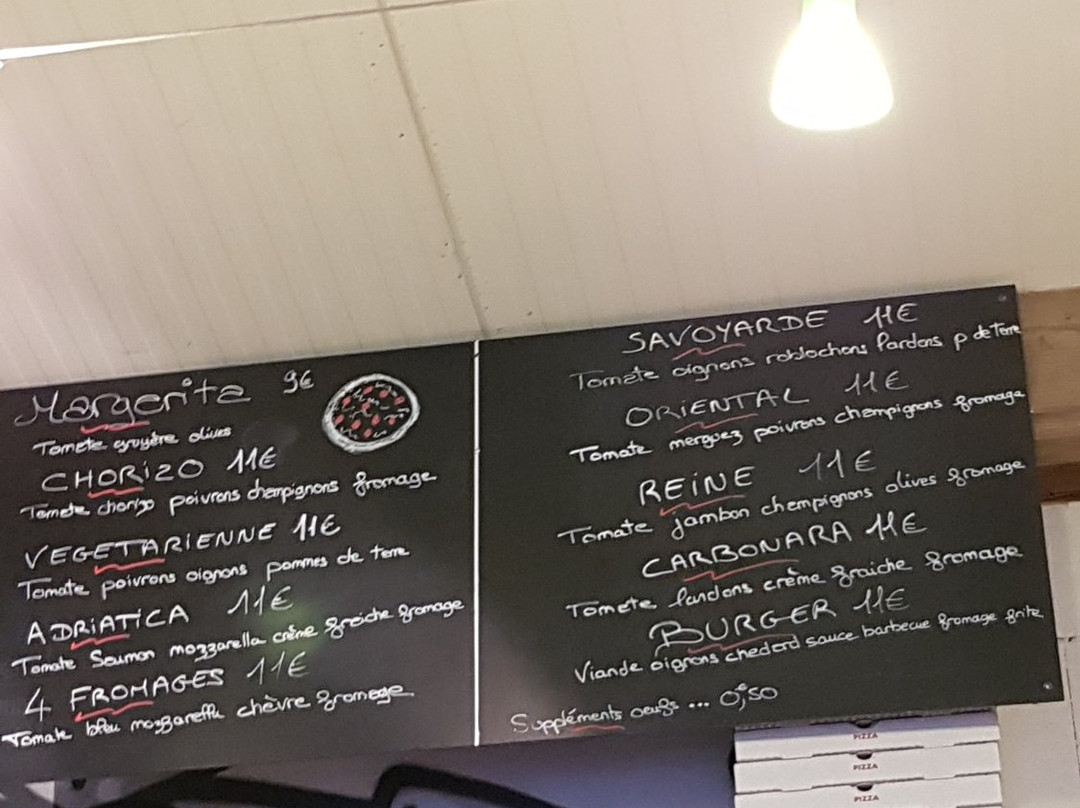 Margerita 9€
Tomate gruyère olives
CHORIZO 11€
Tomate chorizo poivrons champignons fromage
VEGETARIENNE 11€
Tomate poivrons oignons pommes de terre
ADRIATICA 11€
Tomate Saumon mozzarella crème fraiche fromage
4 FROMAGES 11€
Tomate bleu mozzarella chèvre fromage
SAVOYARDE 11€
Tomate oignons roblochons lardons p de terre
ORIENTAL 11€
Tomate merguez poivrons champignons fromage
REINE 11€
Tomate jambon champignons olives fromage
CARBONARA 11€
Tomate lardons crème fraiche fromage
BURGER 11€
Viande oignons chedard sauce barbecue fromage frite
Suppléments oeufs ... 0,€50
PIZZA
PIZZA
PIZZA